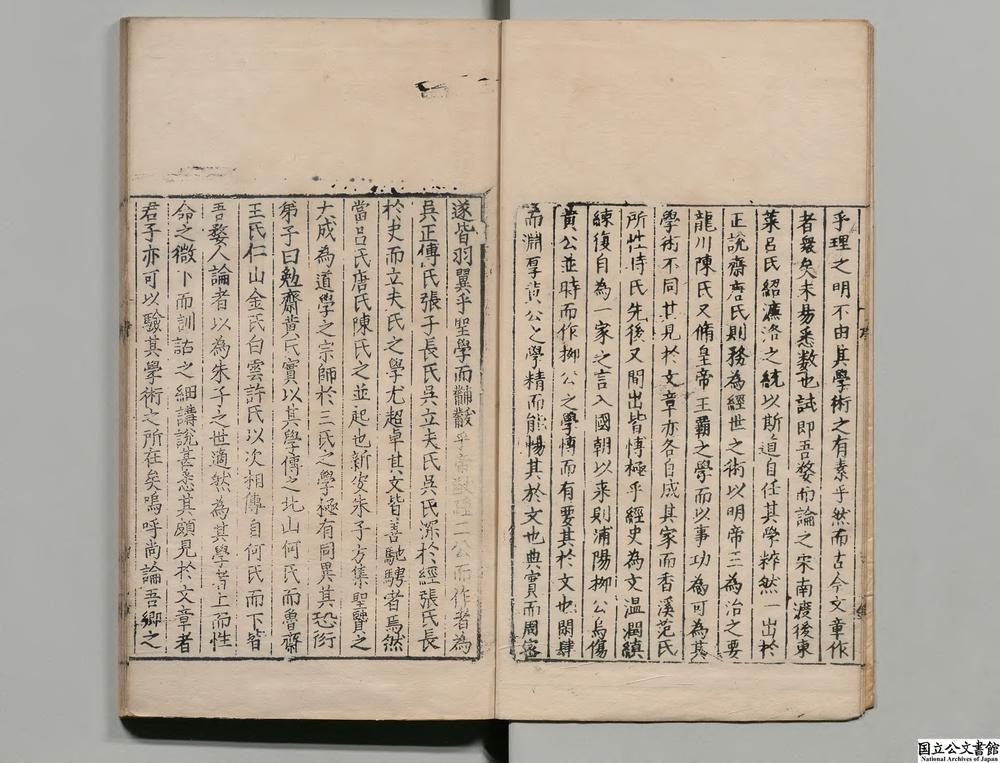 乎理之明不由其學術之有素乎然而古今文章作
者衆矣未易悉數也試即吾婺而論之宋南渡後東
萊呂氏紹濂洛之統以斯道自任其學粹然一出於
正說齋唐氏則務為經世之術以明帝王為治之要
龍川陳氏又脩皇帝王霸之學而以事功為可為其
學術不同其見於文章亦各自成其家而香溪范氏
所性時氏先後又間出皆博極乎經史為文温潤縝
練復自為一家之言入國朝以来則浦陽柳公烏傷
黄公並時而作柳公之學博而有要其於文也閎肆
而淵厚黄公之學精而能暢其於文也典實而周密
遂皆羽翼乎聖學而黼黻乎帝猷繼二公而作者為
吳正傳氏張子長氏吳立夫氏吳氏深於經張氏長
於史而立夫氏之學尤超卓其文皆善馳騁者焉然
當呂氏唐氏陳氏之並起也新安朱子方集聖賢之
大成為道學之宗師於三氏之學極有同異其恐衍
弟子曰勉齋黄氏實以其學傳之北山何氏而魯齋
王氏仁山金氏白雲許氏以次相傳自何氏而下皆
吾婺人論者以為朱子之世適然為其學者上而性
命之微下而訓詁之細講說甚悉其頗見於文章者
君子亦可以驗其學術之所在矣嗚呼尚論吾鄉之
国立公文書館
National Archives of Japan